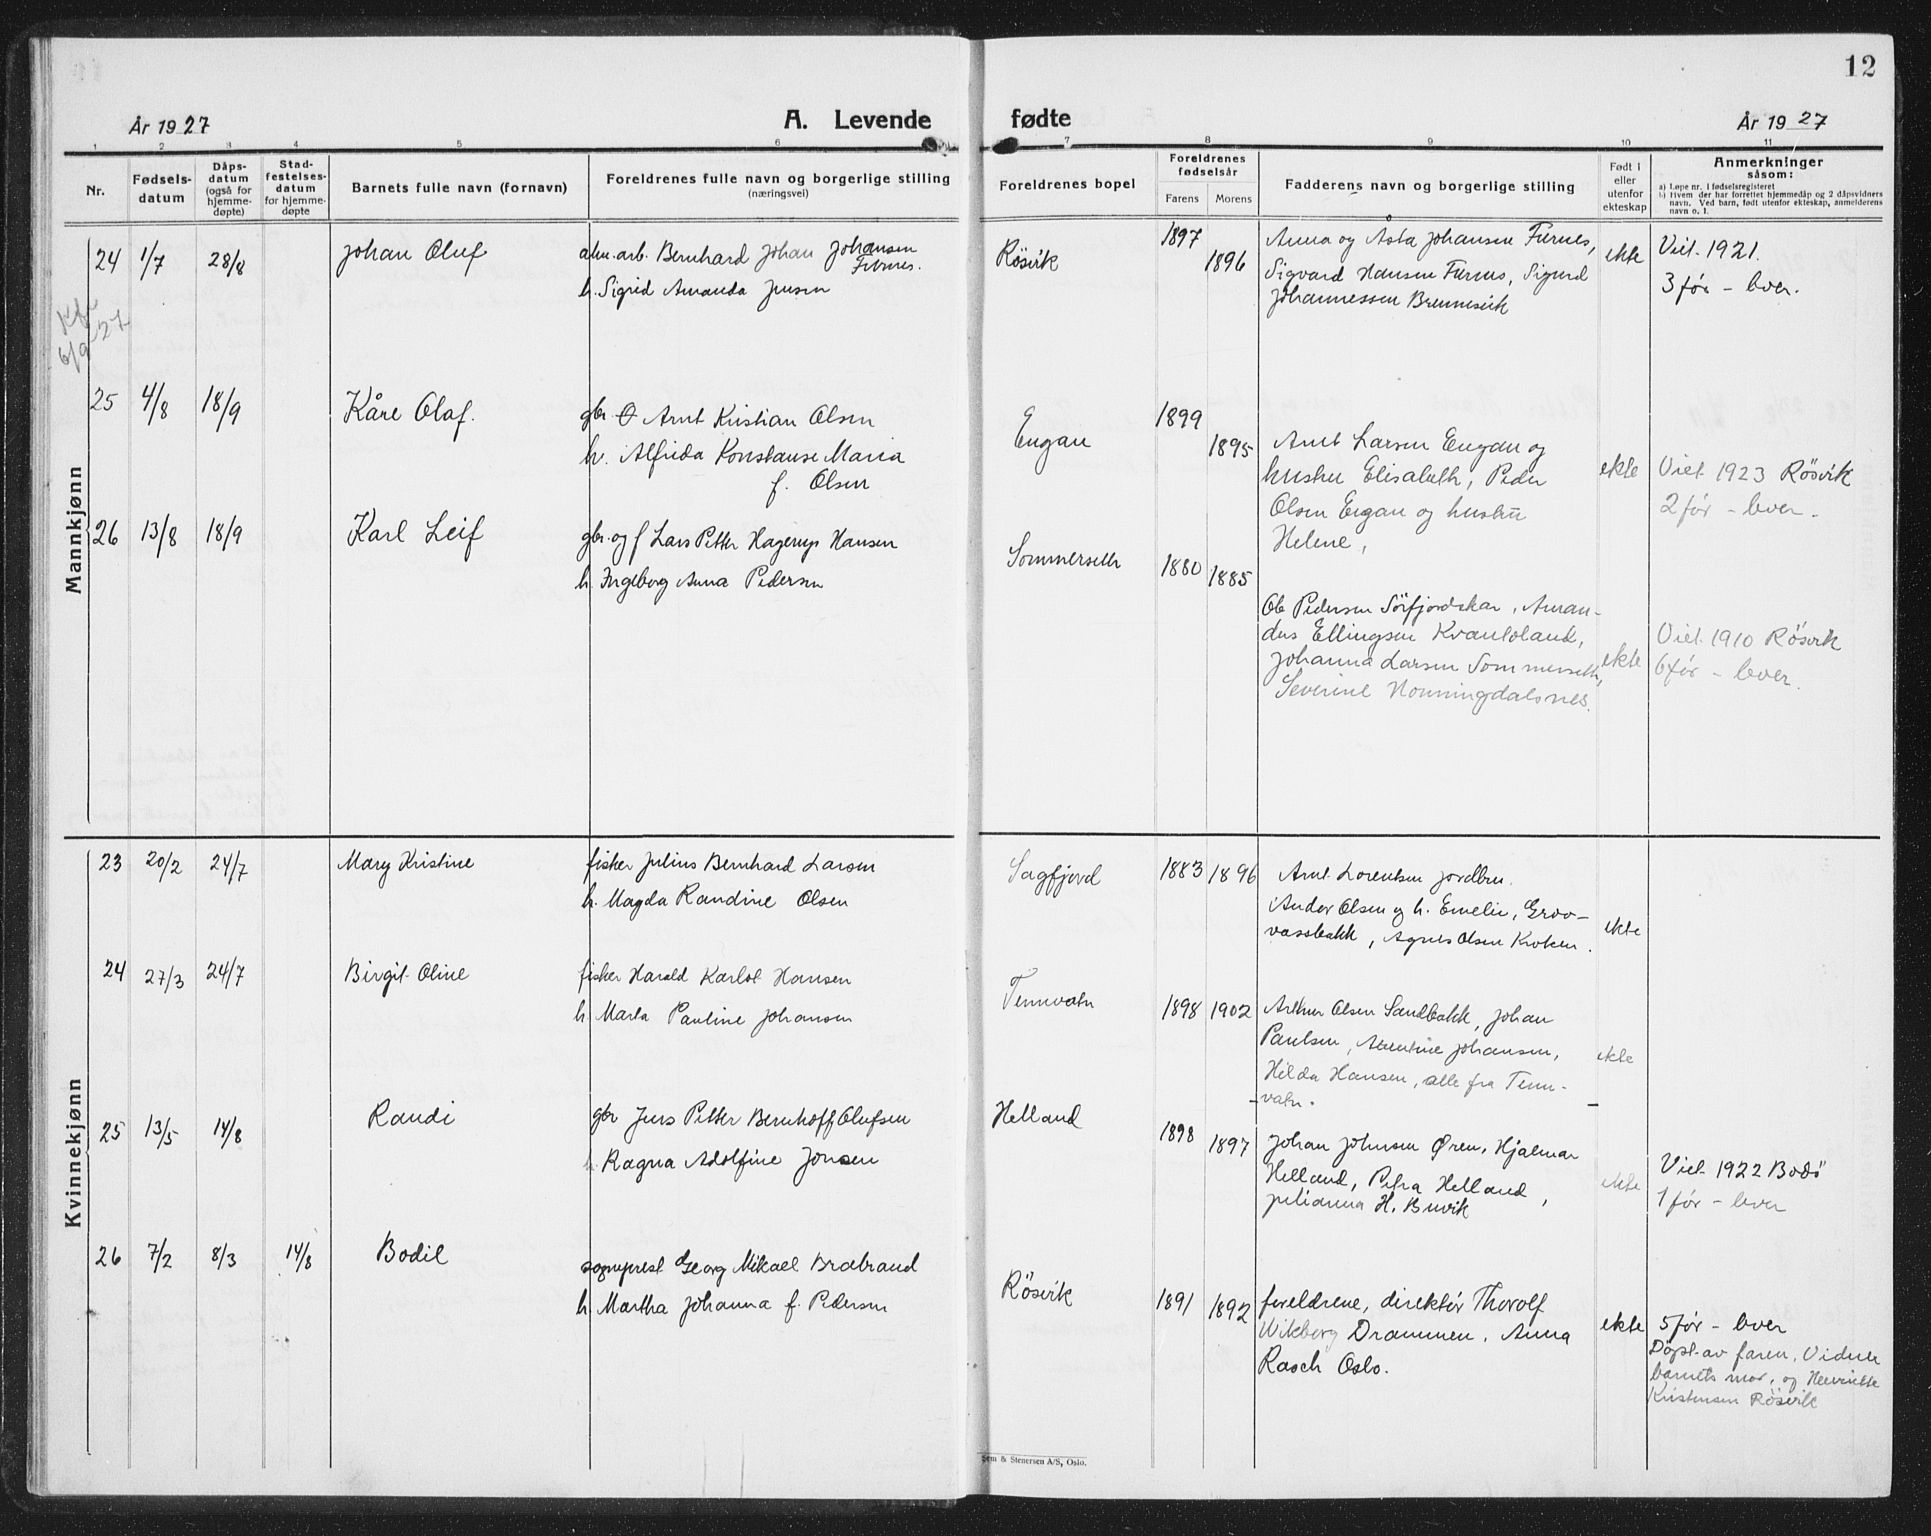 12
År 1927
A. Levende
fødte
År 1927
1 2 3 4 5 6 7 8 9 10 11
Nr.
Fødsels-
datum
Dåps-
datum
(også for
hjemme-
døpte)
Stad-
festelses-
datum
for hjemme-
døpte
Barnets fulle navn (fornavn)
Foreldrenes fulle navn og borgerlige stilling
(næringsvei)
Foreldrenes bopel
Foreldrenes
fødselsår
Farens Morens
Fadderens navn og borgerlige stilling
Født i
eller
utenfor
ekteskap
Anmerkninger
såsom:
a) Løpe nr. i fødselsregisteret
b) Hvem der har forrettet hjemmedåp og 2 dåpsvidners
navn. Ved barn, født utenfor ekteskap, anmelderens
navn o. l.
Mannkjønn
24 1/7 28/8 Johan Oluf
6/9 27
alm. arb. Bernhard Johan Johansen
Furnes.
h. Sigrid Amanda Jensen
Røsvik
1897
1896
Anna og Åsta Johansen Furnes,
Sigvard Hansen Furnes, Sigurd
Johannessen Brennesvik
ekte
Viet 1921.
3 før - lever.
25 4/8 18/9 Kåre Olaf.
gbr. Arnt Kristian Olsen
h. Alfrida Konstanse Maria
f. Olsen
Engan
1899
1895
Arnt Larsen Engan og
hustru Elisabeth, Peder
Olsen Engan og hustru
Helene,
ekte
Viet 1923 Røsvik
2 før - lever.
26 13/8 18/9 Karl Leif
gbr. og f Lars Petter Hagerup Hansen
h. Ingeborg Anna Pedersen
Sommerseth
1880 1885
Ole Pedersen Sörfjordskar, Aman-
dus Ellingsen Kvantoland,
Johanna Larsen Sommerseth,
Severine Nonningdalsnes.
ekte
Viet 1910 Røsvik
6 før - lever.
Kvinnekjønn
23 20/2 24/7 Mary Kristine
fisker Julius Bernhard Larsen
h. Magda Randine Olsen
Sagfjord
1883 1896
Arnt Lorentsen Jordbru.
Andor Olsen og h. Emelie, Grov-
vassbakk, Agnes Olsen Kroken.
ekte
24 27/3 24/7 Birgit Oline
fisker Harald Karlot Hansen
h Marta Pauline Johansen
Tennvatn
1898 1902
Arthur Olsen Sandbakk, Johan
Paulsen, Johansen,
Hilda Hansen, alle fra Tenn-
-vatn.
ekte
25 13/5 14/8 Randi
gbr Jens Petter Bernhoff Olufsen
h Ragna Adolfine Jensen
Helland
1898
1897
Johan Johnsen Øren, Hjalmar
Helland, Petra Helland,
Julianna H. Buvik
ekte
Viet 1922 Bodö
1 før - lever
26 7/2 8/3 14/8 Bodil
sogneprest Georg Mikael Bræbrand
h. Martha Johanna f. Pedersen
Røsvik
1891 1892
foreldrene, direktör Thorolf
Wikborg Drammen, Anna
Rasch Oslo.
ekte
5 før - lever
Döpt av faren, Vidner
barnets mor, og Henriette
Kristensen Røsvik
Sem & Stenersen A/S, Oslo.